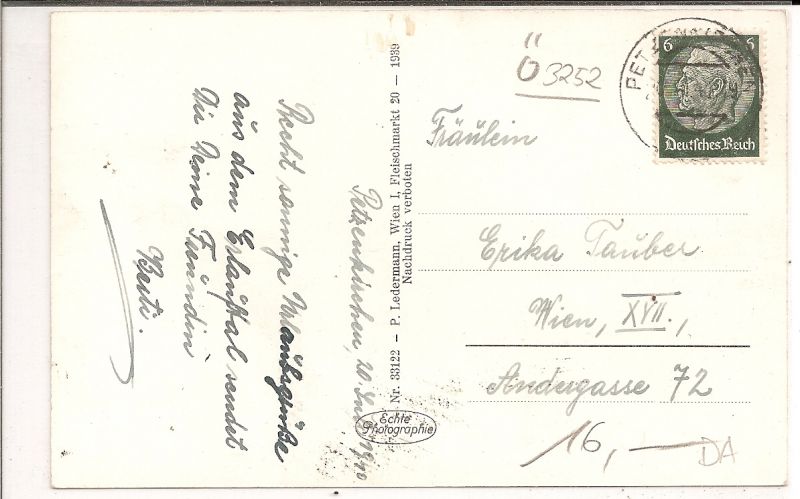 Petzenkirchen, 20. Juli 1940
Recht sonnige Urlaubsgrüße
aus dem Erlauftal sendet
Dir Deine Freundin
Berti.
Nr. 33122 — P. Ledermann, Wien I, Fleischmarkt 20 — 1939
Nachdruck verboten
Echte
Photographie
Ö 3252
6 6
Deutsches Reich
Fräulein
Erika Tauber
Wien, XVII.,
Andergasse 72
16,—
DA